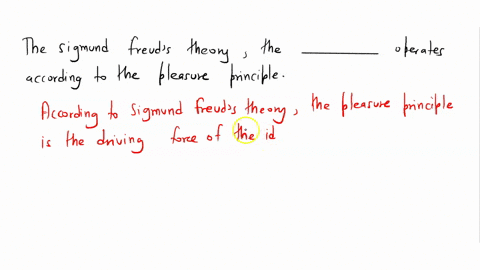 The sigmund freud's theory, the ________ operates
according to the pleasure principle.
According to sigmund freud's theory, the pleasure principle
is the driving force of the id